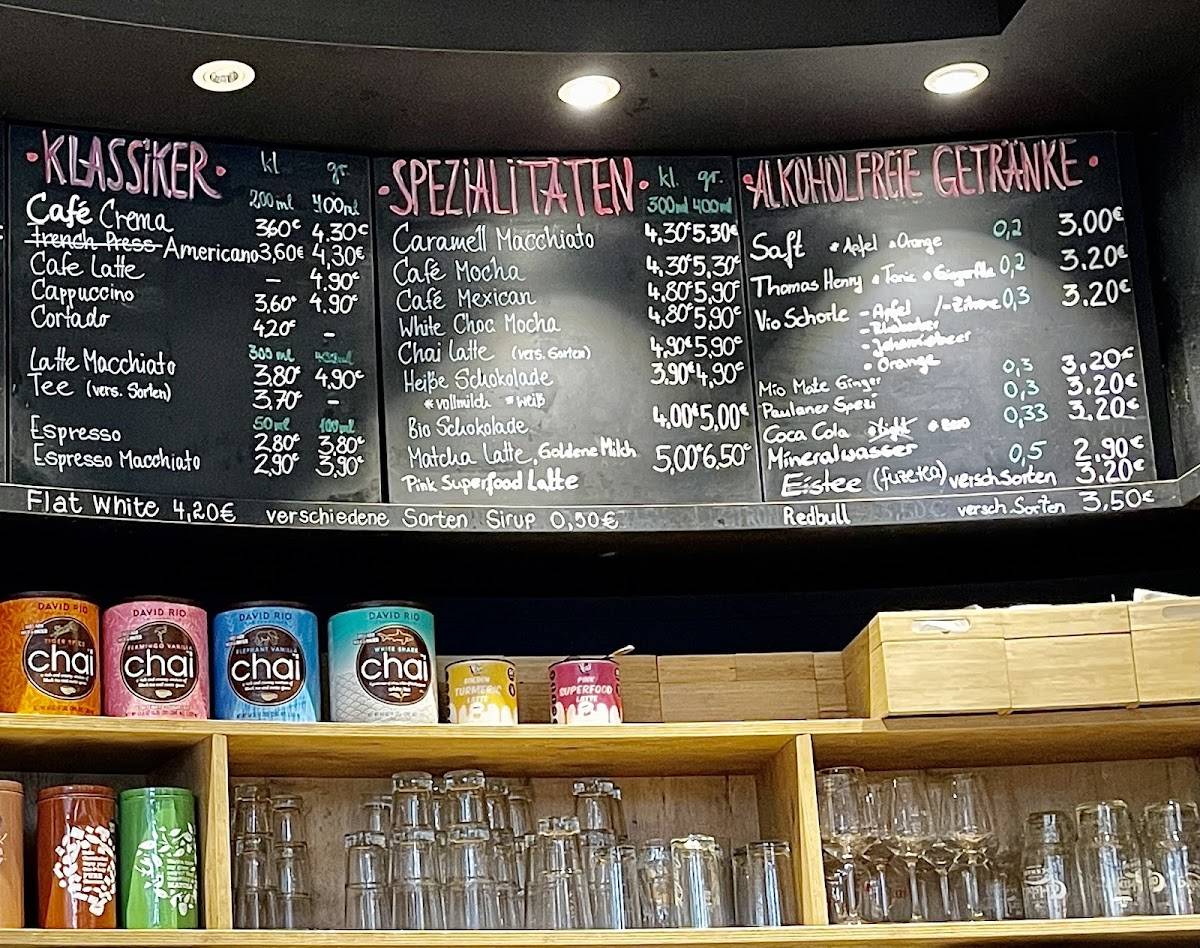 ·KLASSIKER· kl gr.
200ml 400ml
Café Crema 3,60€ 4.30€
French Press Americano 3,60€ 4,30€
Cafe Latte – 4.90€
Cappuccino 3,60€ 4.90€
Cortado 4,20€ –
300 ml 400ml
Latte Macchiato 3,80€ 4,90€
Tee (vers. Sorten) 3,70€ –
50ml 100ml
Espresso 2,80€ 3,80€
Espresso Macchiato 2,90€ 3,90€
Flat White 4,20€ verschiedene Sorten Sirup 0,50€
·SPEZIALITÄTEN· kl. gr.
300ml 400ml
Caramell Macchiato 4,30€ 5,30€
Café Mocha 4,30€ 5,30€
Café Mexican 4,80€ 5,90€
White Choc Mocha 4,80€ 5,90€
Chai Latte (vers. Sorten) 4,90€ 5,90€
Heiße Schokolade 3.90€ 4,90€
*vollmilch *weiß
Bio Schokolade 4,00€ 5,00€
Matcha Latte, Goldene Milch 5,00€ 6,50€
Pink Superfood Latte
·ALKOHOLFREIE GETRÄNKE·
Saft *Apfel *Orange 0,2 3,00€
Thomas Henry *Tonic *GingerAle 0,2 3.20€
Vio Schorle - Apfel /-Zitrone 0,3 3.20€
- Rhabarber
- Johannisbeer
* Orange
Mio Mate Ginger 0,3 3,20€
Paulaner Spezi 0,3 3.20€
Coca Cola *light *Zero 0,33 3,20€
Mineralwasser 0,5 2,90€
Eistee (fuzetea) versch Sorten 3,20€
Redbull versch. Sorten 3,50€
DAVID RIO
TIGER SPICE
chai
DAVID RIO
FLAMINGO VANILLA
chai
DAVID RIO
ELEPHANT VANILLA
chai
DAVID RIO
WHITE SHARK
chai
GOLDEN
TURMERIC
LATTE
PINK
SUPERFOOD
LATTE